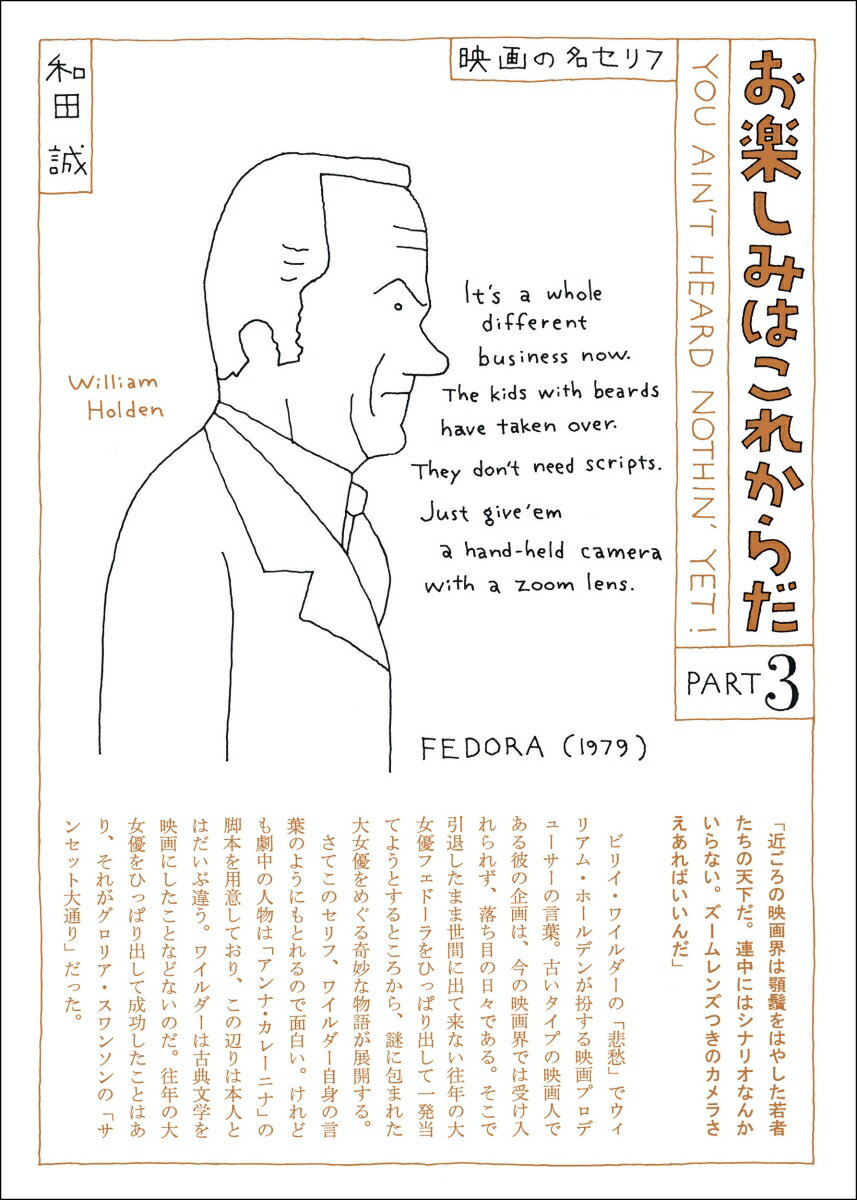 お楽しみはこれからだ
YOU AIN'T HEARD NOTHIN' YET!
PART 3
映画の名セリフ
和田 誠
William
Holden
It's a whole
different
business now.
The kids with beards
have taken over.
They don't need scripts.
Just give 'em
a hand-held camera
with a zoom lens.
FEDORA (1979)
「近ごろの映画界は顎鬚をはやした若者
たちの天下だ。連中にはシナリオなんか
いらない。ズームレンズつきのカメラさ
えあればいいんだ」
ビリイ・ワイルダーの「悲愁」でウィ
リアム・ホールデンが扮する映画プロデ
ューサーの言葉。古いタイプの映画人で
ある彼の企画は、今の映画界では受け入
れられず、落ち目の日々である。そこで
引退したまま世間に出て来ない往年の大
女優フェドーラをひっぱり出して一発当
てようとするところから、謎に包まれた
大女優をめぐる奇妙な物語が展開する。
さてこのセリフ、ワイルダー自身の言
葉のようにもとれるので面白い。けれど
も劇中の人物は「アンナ・カレーニナ」の
脚本を用意しており、この辺りは本人と
はだいぶ違う。ワイルダーは古典文学を
映画にしたことなどないのだ。往年の大
女優をひっぱり出して成功したことはあ
り、それがグロリア・スワンソンの「サ
ンセット大通り」だった。